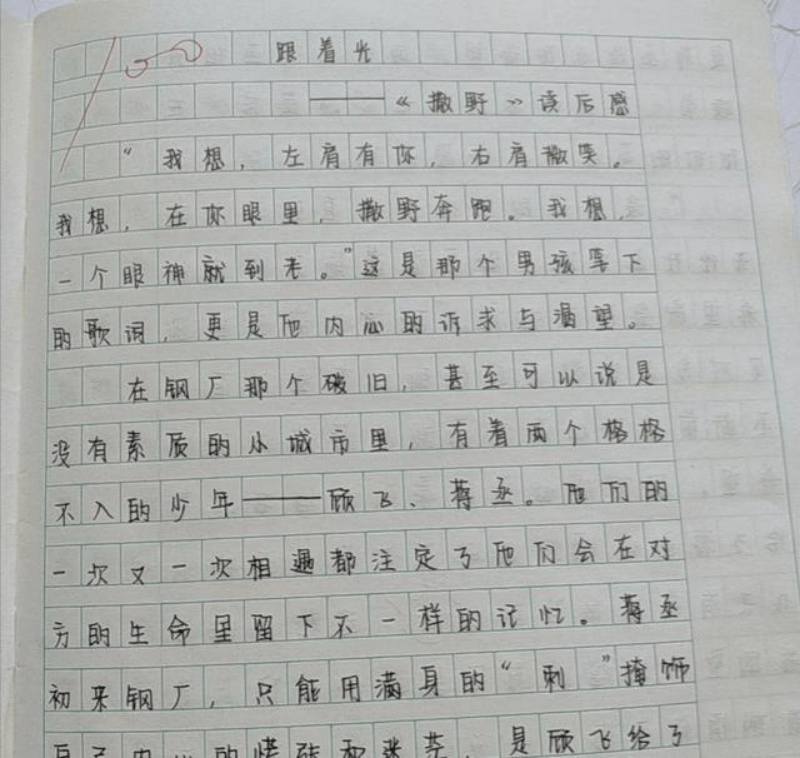 跟着光
——《撒野》读后感
“我想，左肩有你，右肩微笑。
我想，在你眼里，撒野奔跑。我想，
一个眼神就到老。”这是那个男孩写下
的歌词，更是他内心的诉求与渴望。
在钢厂那个破旧，甚至可以说是
没有素质的小城市里，有着两个格格
不入的少年——顾飞、蒋丞。他们的
一次又一次相遇都注定了他们会在对
方的生命里留下不一样的记忆。蒋丞
初来钢厂，只能用满身的“刺”掩饰
自己内心的慌张和迷茫，是顾飞给了